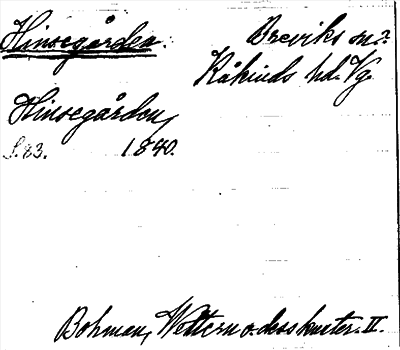 Hinsegården. Breviks sn?
Kåkinds hd. Vg.
Hinsegården,
S. 83. 1840.
Bohman, Wettern o. dess kuster. II.